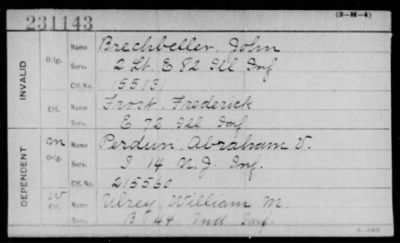 231143
(3-H-4)
INVALID
Orig. Name Brechbeller, John
Serv. 2 Lt. E 82 Ill Inf
Ctf. No. 15513
Ctf. Name Frost, Frederick
Serv. E 72 Ill Inf
DEPENDENT
m Orig. Name Perdun, Abraham V.
Serv. I 14 N.J. Inf.
Ctf. No. 215560
W Ctf. Name Ulrey, William M
Serv. B 44 Ind Inf.